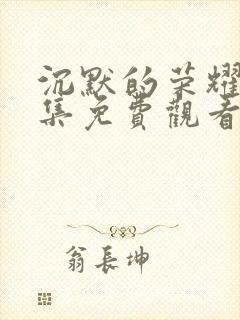 沉默的荣耀
集免費觀看
翁長坤